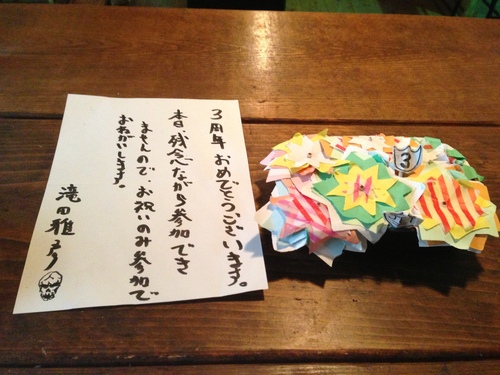 3周年おめでとうございます。
本日、残念ながら参加でき
ませんので、お祝いのみ参加で
おねがいします。
滝田雅
3